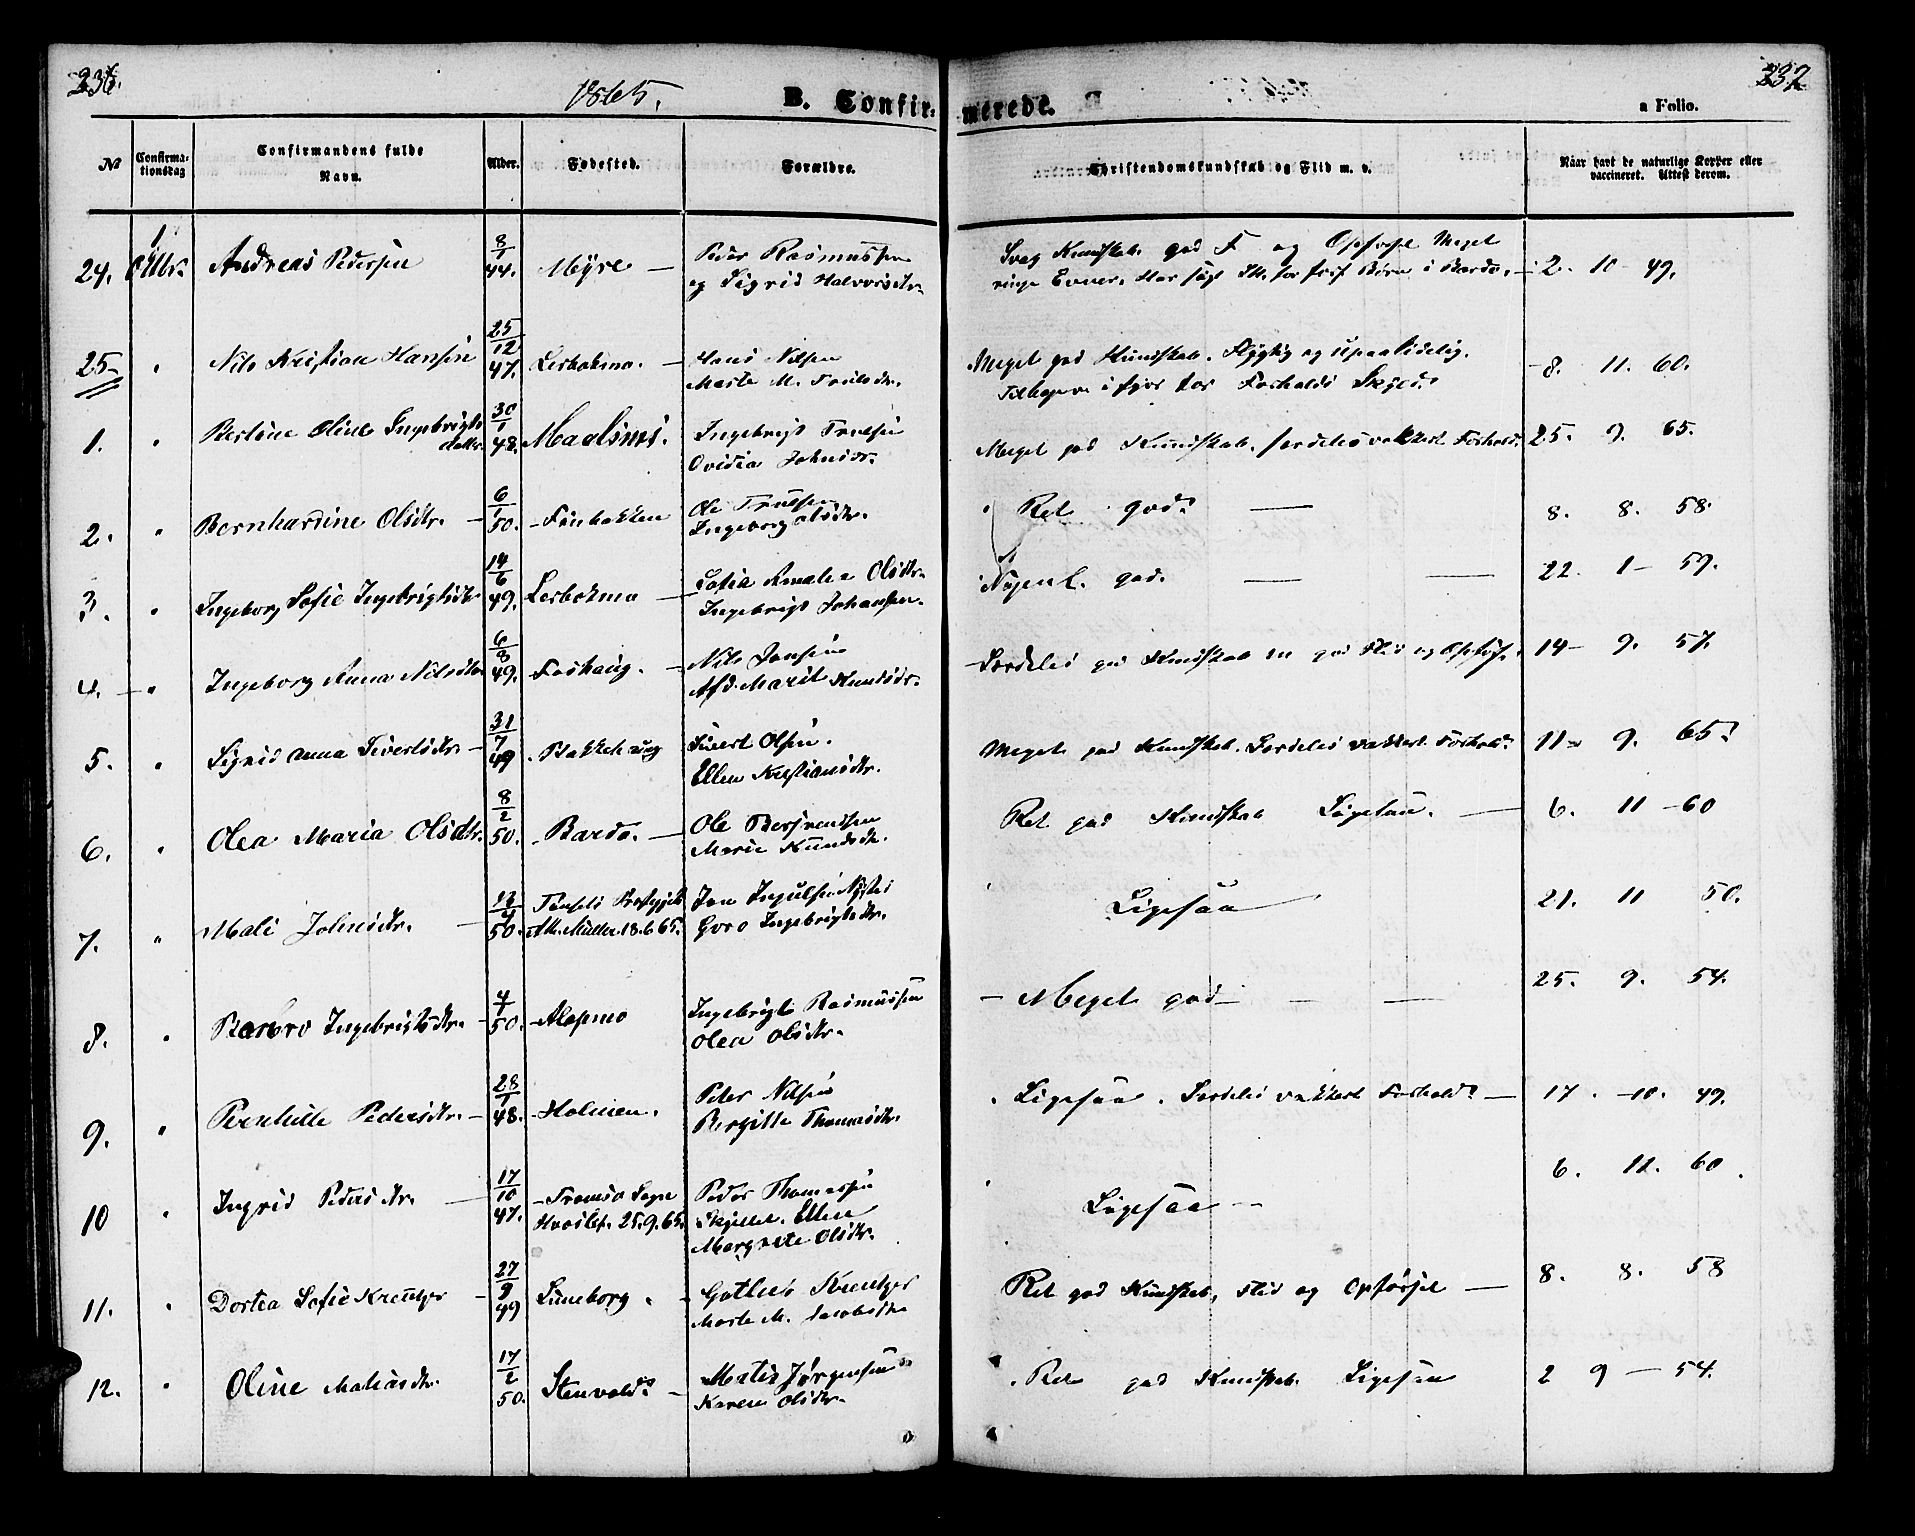 236.
1865.
B. Confir-
merede.
237
a Folio.
No
Confirma-
tionsdag
Confirmandens fulde
Navn.
Alder.
Fødested.
Forældre.
Christendomskundskab og Flid m. v.
Naar havt de naturlige Kopper eller
vaccineret. Attest derom.
24. 1 Andreas Pedersen 8/1 44. Meyre — Peder Rasmussen
og Sigrid Halvorsdtr.
Svag Kundskab. god F og Opførsel Meget
ringe Evner. 2. 10 - 49.
25 " Nils Kristian Hansen 25/12 47. Lerbakmo. — Hans Nilsen
Marte M. Toulsdtr.
Meget god Kundskab. Flygtig og upaalidelig. 8. 11. 60.
1. " Bertine Oline Ingebrigts
datter 30/1 48. Maalsnes. Ingebrigt Truelsen
Ovidia Johnsdtr.
Meget god Kundskab. særdeles vakkert Forhold. 25. 9. 65.
2. " Bernhardine Olsdtr. — 6/1 50. Ole Truelsen
Ingeborg Olsdtr.
Ret god. — 8. 8. 58.
3. " Ingeborg Sofie Ingebrigtsdtr 14/6 49. Lerbakmo — Sofia Amalia Olsdtr.
Ingebrigt Johansen.
Nogenl. god. — — 22. 1 - 59.
4. " Ingeborg Anna Nilsdtr. 6/8 49. Foshaug. — Nils Jensen
Afd. Marit Knudsdr.
Særdeles god Kundskab god Flid og Opførs. 14 - 9. 57.
5. " Sigrid Anna Sivertsdtr. — 31/7 49 Bakkehaug Sivert Olsen.
Ellen Kristiansdtr.
Meget god Kundskab. Særdeles vakkert Forhold. 11 - 9. 65.
6. " Olea Maria Olsdtr. 8/2 50. Bardo. — Ole Bersvendsen
Marie Knudsdtr.
Ret god Kundskab Ligesaa. — 6. 11 - 60
7. " Mali Johnsdtr. — 13/4 50. Tønsets Præstegjeld
Att. Müller 18.6.65. Jon Ingulfsen Nystei
Goro Ingebrigtsdtr.
Ligesaa 21. 11 50.
8. " Barbro Ingebrigtsdtr. — 4/1 50. Alapmo Ingebrigt Rasmussen
Olea Olsdtr.
— Meget god — — — 25. 9. 54.
9. " Pernhille Pedersdtr. — 28/1 48. Holmen. Peder Nilsen
Birgitte Thomasdtr.
Ligesaa. Særdeles vakkert Forhold — 17. 10. 49.
10 Ingrid Pedersdtr. — 17/10 47. Tromsø Sogn
Hvoslef. 25.9.65. Peder Thomassen
Skjellet. Ellen
Margrete Olsdtr.
Ligesaa — 6. 12. 60.
11. " Dortea Sofie Kreutzer — 27/9 49 Luneborg. — Gotlieb Kreutzer
Marte M. Jacobsdtr
Ret god Kundskab, Flid og Opførsel — 8. 8. 58
12. " Oline Matiasdtr. 17/2 50. Stenvold — Matis Jørgensen
Karen Olsdtr.
Ret god Kundskab. Ligesaa 2 9 — 54.